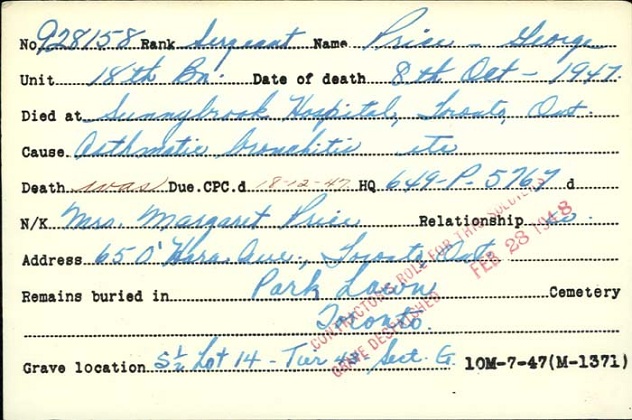 No. 928158 Rank Sergeant Name Price - George
Unit 18th Bn. Date of death 8th Oct - 1947.
Died at Sunnybrook Hospital, Toronto, Ont.
Cause Asthmatic bronchitis etc
Death was Due. CPC.d 18-12-47 HQ 649-P-5767 d
N/K Mrs. Margaret Price Relationship
Address 65 O'Hara Ave., Toronto Ont
Remains buried in Park Lawn Cemetery
Toronto.
CONTRACTOR'S ROLE FOR THIS SOLDIER'S
GRAVE DESPATCHED FEB 28 1948
Grave location S½ Lot 14 - Tier 44 Sect. G. 10M-7-47(M-1371)